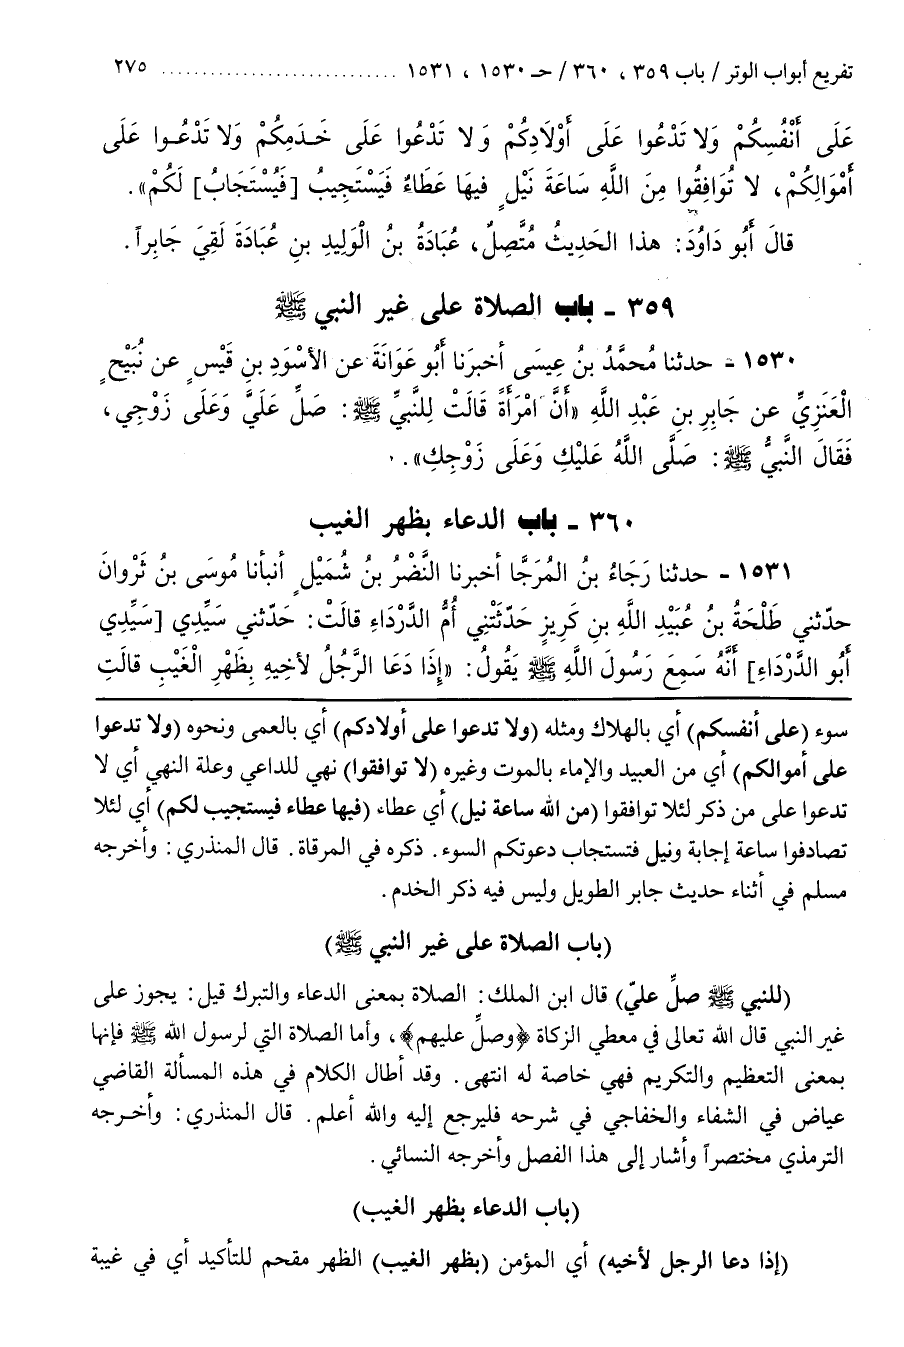 تفريع أبواب الوتر / باب ٣٥٩ ، ٣٦٠ / حـ ١٥٣٠ ، ١٥٣١ .............................. ٢٧٥
عَلَى أَنْفُسِكُمْ وَلا تَدْعُوا عَلَى أَوْلَادِكُمْ وَلا تَدْعُوا عَلَى خَدَمِكُمْ وَلا تَدْعُوا عَلَى
أَمْوَالِكُمْ، لا تُوَافِقُوا مِنَ اللَّهِ سَاعَةَ نَيْلٍ فيهَا عَطَاءٌ فَيَسْتَجِيبُ [فَيُسْتَجَابُ] لَكُمْ».
قالَ أَبُو دَاوُدَ: هذا الحَدِيثُ مُتَّصِلٌ، عُبَادَةُ بنُ الْوَلِيدِ بنِ عُبَادَةَ لَقِيَ جَابِراً.
٣٥٩ ـ باب الصلاة على غير النبي ﷺ
١٥٣٠ - حدثنا مُحمَّدُ بنُ عِيسَى أخبرَنا أَبُو عَوَانَةَ عن الأسْوَدِ بنِ قَيْسٍ عن نُبَيْحٍ
الْعَنَزِيِّ عن جَابِرِ بنِ عَبْدِ اللَّهِ «أَنَّ امْرَأَةً قَالَتْ لِلنَّبيِّ ﷺ: صَلِّ عَلَيَّ وَعَلَى زَوْجِي،
فَقَالَ النَّبيُّ ﷺ: صَلَّى اللَّهُ عَلَيْكِ وَعَلَى زَوْجِكِ».
٣٦٠ ـ باب الدعاء بظهر الغيب
١٥٣١ - حدثنا رَجَاءُ بنُ المُرَجَّا أخبرنا النَّضْرُ بنُ شُمَيْلٍ أنبأنا مُوسَى بنُ ثَرْوانَ
حدّثني طَلْحَةُ بنُ عُبَيْدِ اللَّهِ بنِ كَرِيزٍ حَدّثَتْنِي أُمُّ الدَّرْدَاءِ قالَتْ: حَدّثني سَيِّدِي [سَيِّدِي
أَبُو الدَّرْدَاءِ] أَنَّهُ سَمِعَ رَسُولَ اللَّهِ ﷺ يَقُولُ: «إِذَا دَعَا الرَّجُلُ لأخيهِ بِظَهْرِ الْغَيْبِ قالَتِ
سوء (على أنفسكم) أي بالهلاك ومثله (ولا تدعوا على أولادكم) أي بالعمى ونحوه (ولا تدعوا
على أموالكم) أي من العبيد والإماء بالموت وغيره (لا توافقوا) نهي للداعي وعلة النهي أي لا
تدعوا على من ذكر لئلا توافقوا (من الله ساعة نيل) أي عطاء (فيها عطاء فيستجيب لكم) أي لئلا
تصادفوا ساعة إجابة ونيل فتستجاب دعوتكم السوء. ذكره في المرقاة. قال المنذري: وأخرجه
مسلم في أثناء حديث جابر الطويل وليس فيه ذكر الخدم.
(باب الصلاة على غير النبي ﷺ)
(للنبي ﷺ صلِّ عليّ) قال ابن الملك: الصلاة بمعنى الدعاء والتبرك قيل: يجوز على
غير النبي قال الله تعالى في معطي الزكاة ﴿وصلِّ عليهم﴾، وأما الصلاة التي لرسول الله ﷺ فإنها
بمعنى التعظيم والتكريم فهي خاصة له انتهى. وقد أطال الكلام في هذه المسألة القاضي
عياض في الشفاء والخفاجي في شرحه فليرجع إليه والله أعلم. قال المنذري: وأخرجه
الترمذي مختصراً وأشار إلى هذا الفصل وأخرجه النسائي.
(باب الدعاء بظهر الغيب)
(إذا دعا الرجل لأخيه) أي المؤمن (بظهر الغيب) الظهر مقحم للتأكيد أي في غيبة